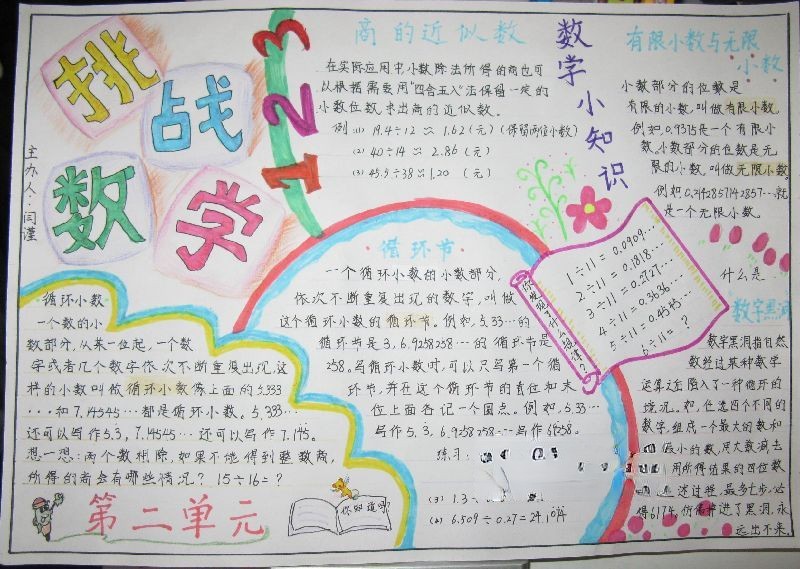 挑战
数学
123
主办人：闫谨
商的近似数
在实际应用中小数除法所得的商也可
以根据需要用"四舍五入"法保留一定的
小数位数，求出商的近似数。
例：(1) 19.4÷12≈1.62(元)(保留两位小数)
(2) 40÷14≈2.86(元)
(3) 45.5÷38≈1.20(元)
数学小知识
有限小数与无限
小数
小数部分的位数是
有限的小数，叫做有限小数
例如，0.9375是一个有限小
数。小数部分的位数是无
限的小数，叫做无限小数。
例如0.2142857142857…就
是一个无限小数。
循环小数
一个数的小
数部分，从某一位起，一个数
字或者几个数字依次不断重复出现，这
样的小数叫做循环小数像上面的5.333
…和7.14545…都是循环小数。5.333…
还可以写作5.3，7.14545…还可以写作7.145。
想一想：两个数相除，如果不能得到整数商，
所得的商会有哪些情况？15÷16=？
第二单元
循环节
一个循环小数的小数部分，
依次不断重复出现的数字，叫做
这个循环小数的循环节。例如，5.33…的
循环节是3，6.9258258…的循环节是
258。写循环小数时，可以只写第一个循
环节，并在这个循环节的首位和末
位上面各记一个圆点。例如，5.33…
写作5.3，6.9258258…写作6.9258。
练习：
(3) 1.3
(2) 6.509÷0.27=24.1
你知道吗？
你发现了什么规律？
1÷11=0.0909…
2÷11=0.1818…
3÷11=0.2727…
4÷11=0.3636…
5÷11=0.4545…
6÷11=？
什么是
数字黑洞
数字黑洞指自然
数经过某种数学
运算之后陷入了一种循环的
境况。如，任选四个不同的
数字，组成一个最大的数和
最小的数，用大数减去
用所得结果的四位数
上述过程，最多七步，必
得6174，仿佛掉进了黑洞，永
远出不来。